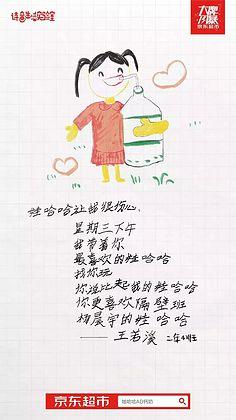 大牌风暴
京东超市
娃哈哈让我很伤心
星期三下午
我带着你
最喜欢的娃哈哈
找你玩
你说比起我的娃哈哈
你更喜欢隔壁班
杨晨宇的娃哈哈
——王若溪 二年4班
京东超市
哇哈哈AD钙奶